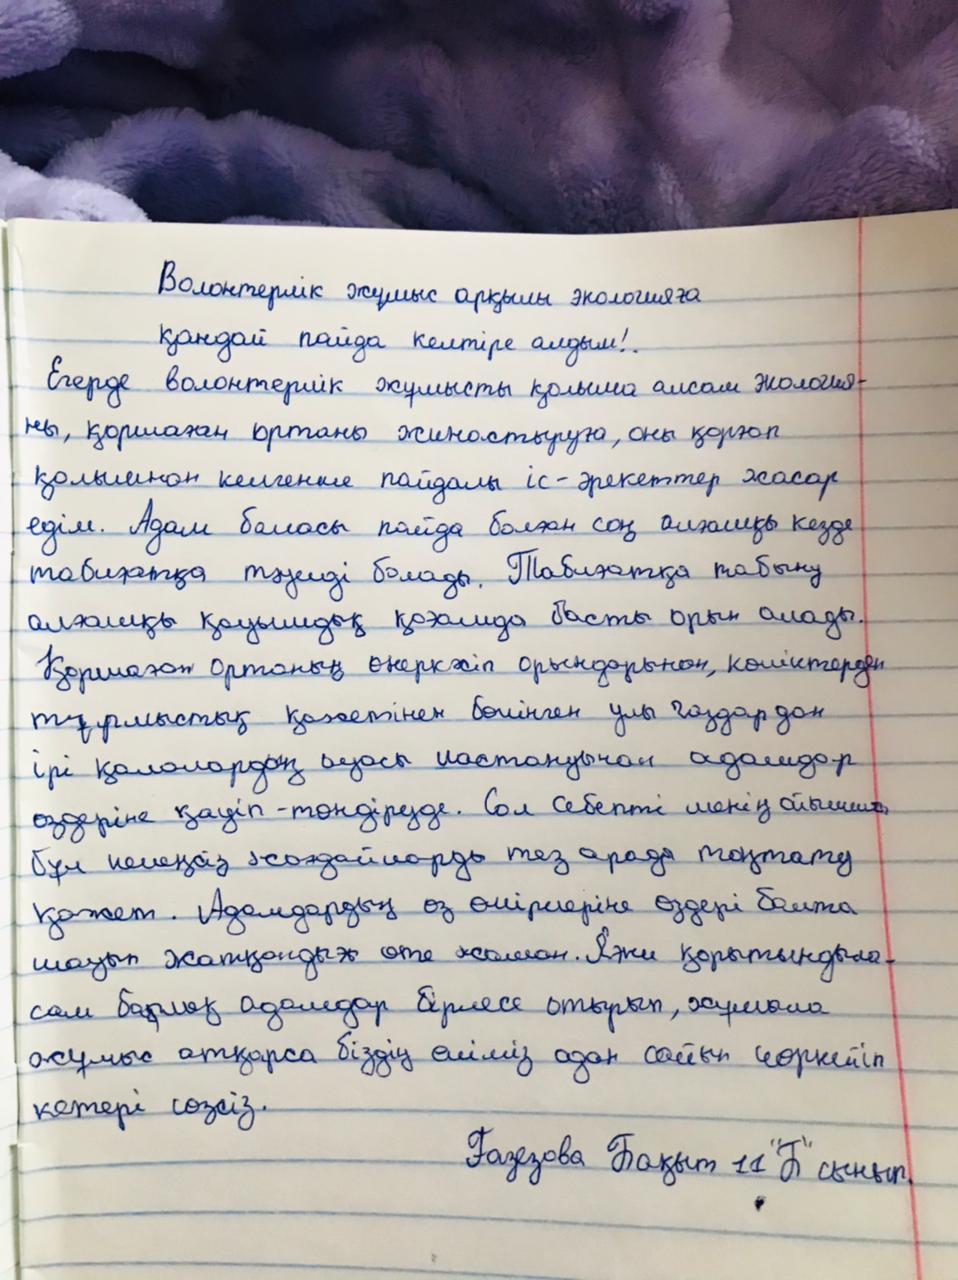 Волонтерлік жұмыс арқылы экологияға
қандай пайда келтіре алдым!.
Егерде волонтерлік жұмысты қолыма алсам экология-
ны, қоршаған ортаны жинастыруға, оны қорғап
қолымнан келгенше пайдалы іс-әрекеттер жасар
едім. Адам баласы пайда болған соң алғашқы кезде
табиғатқа тәуелді болады. Табиғатқа табыну
алғашқы қауымдық қоғамда басты орын алады.
Қоршаған ортаның өнеркәсіп орындарынан, көліктерден
тұрмыстық қажетінен бөлінген улы газдардан
ірі қалалардың ауасы ластануынан адамдар
өздеріне қауіп-төндіруде. Сол себепті менің ойымша,
бұл келеңсіз жағдайларды тез арада тоқтату
қажет. Адамдардың өз өмірлеріне өздері балта
шауып жатқандығ өте жаман. Яғни қорытындыла-
сам барлық адамдар бірлесе отырып, жұмыла
жұмыс атқарса біздің еліміз одан сайын көркейіп
кетері сөзсіз.
Газезова Бақыт 11 "Б" сынып.